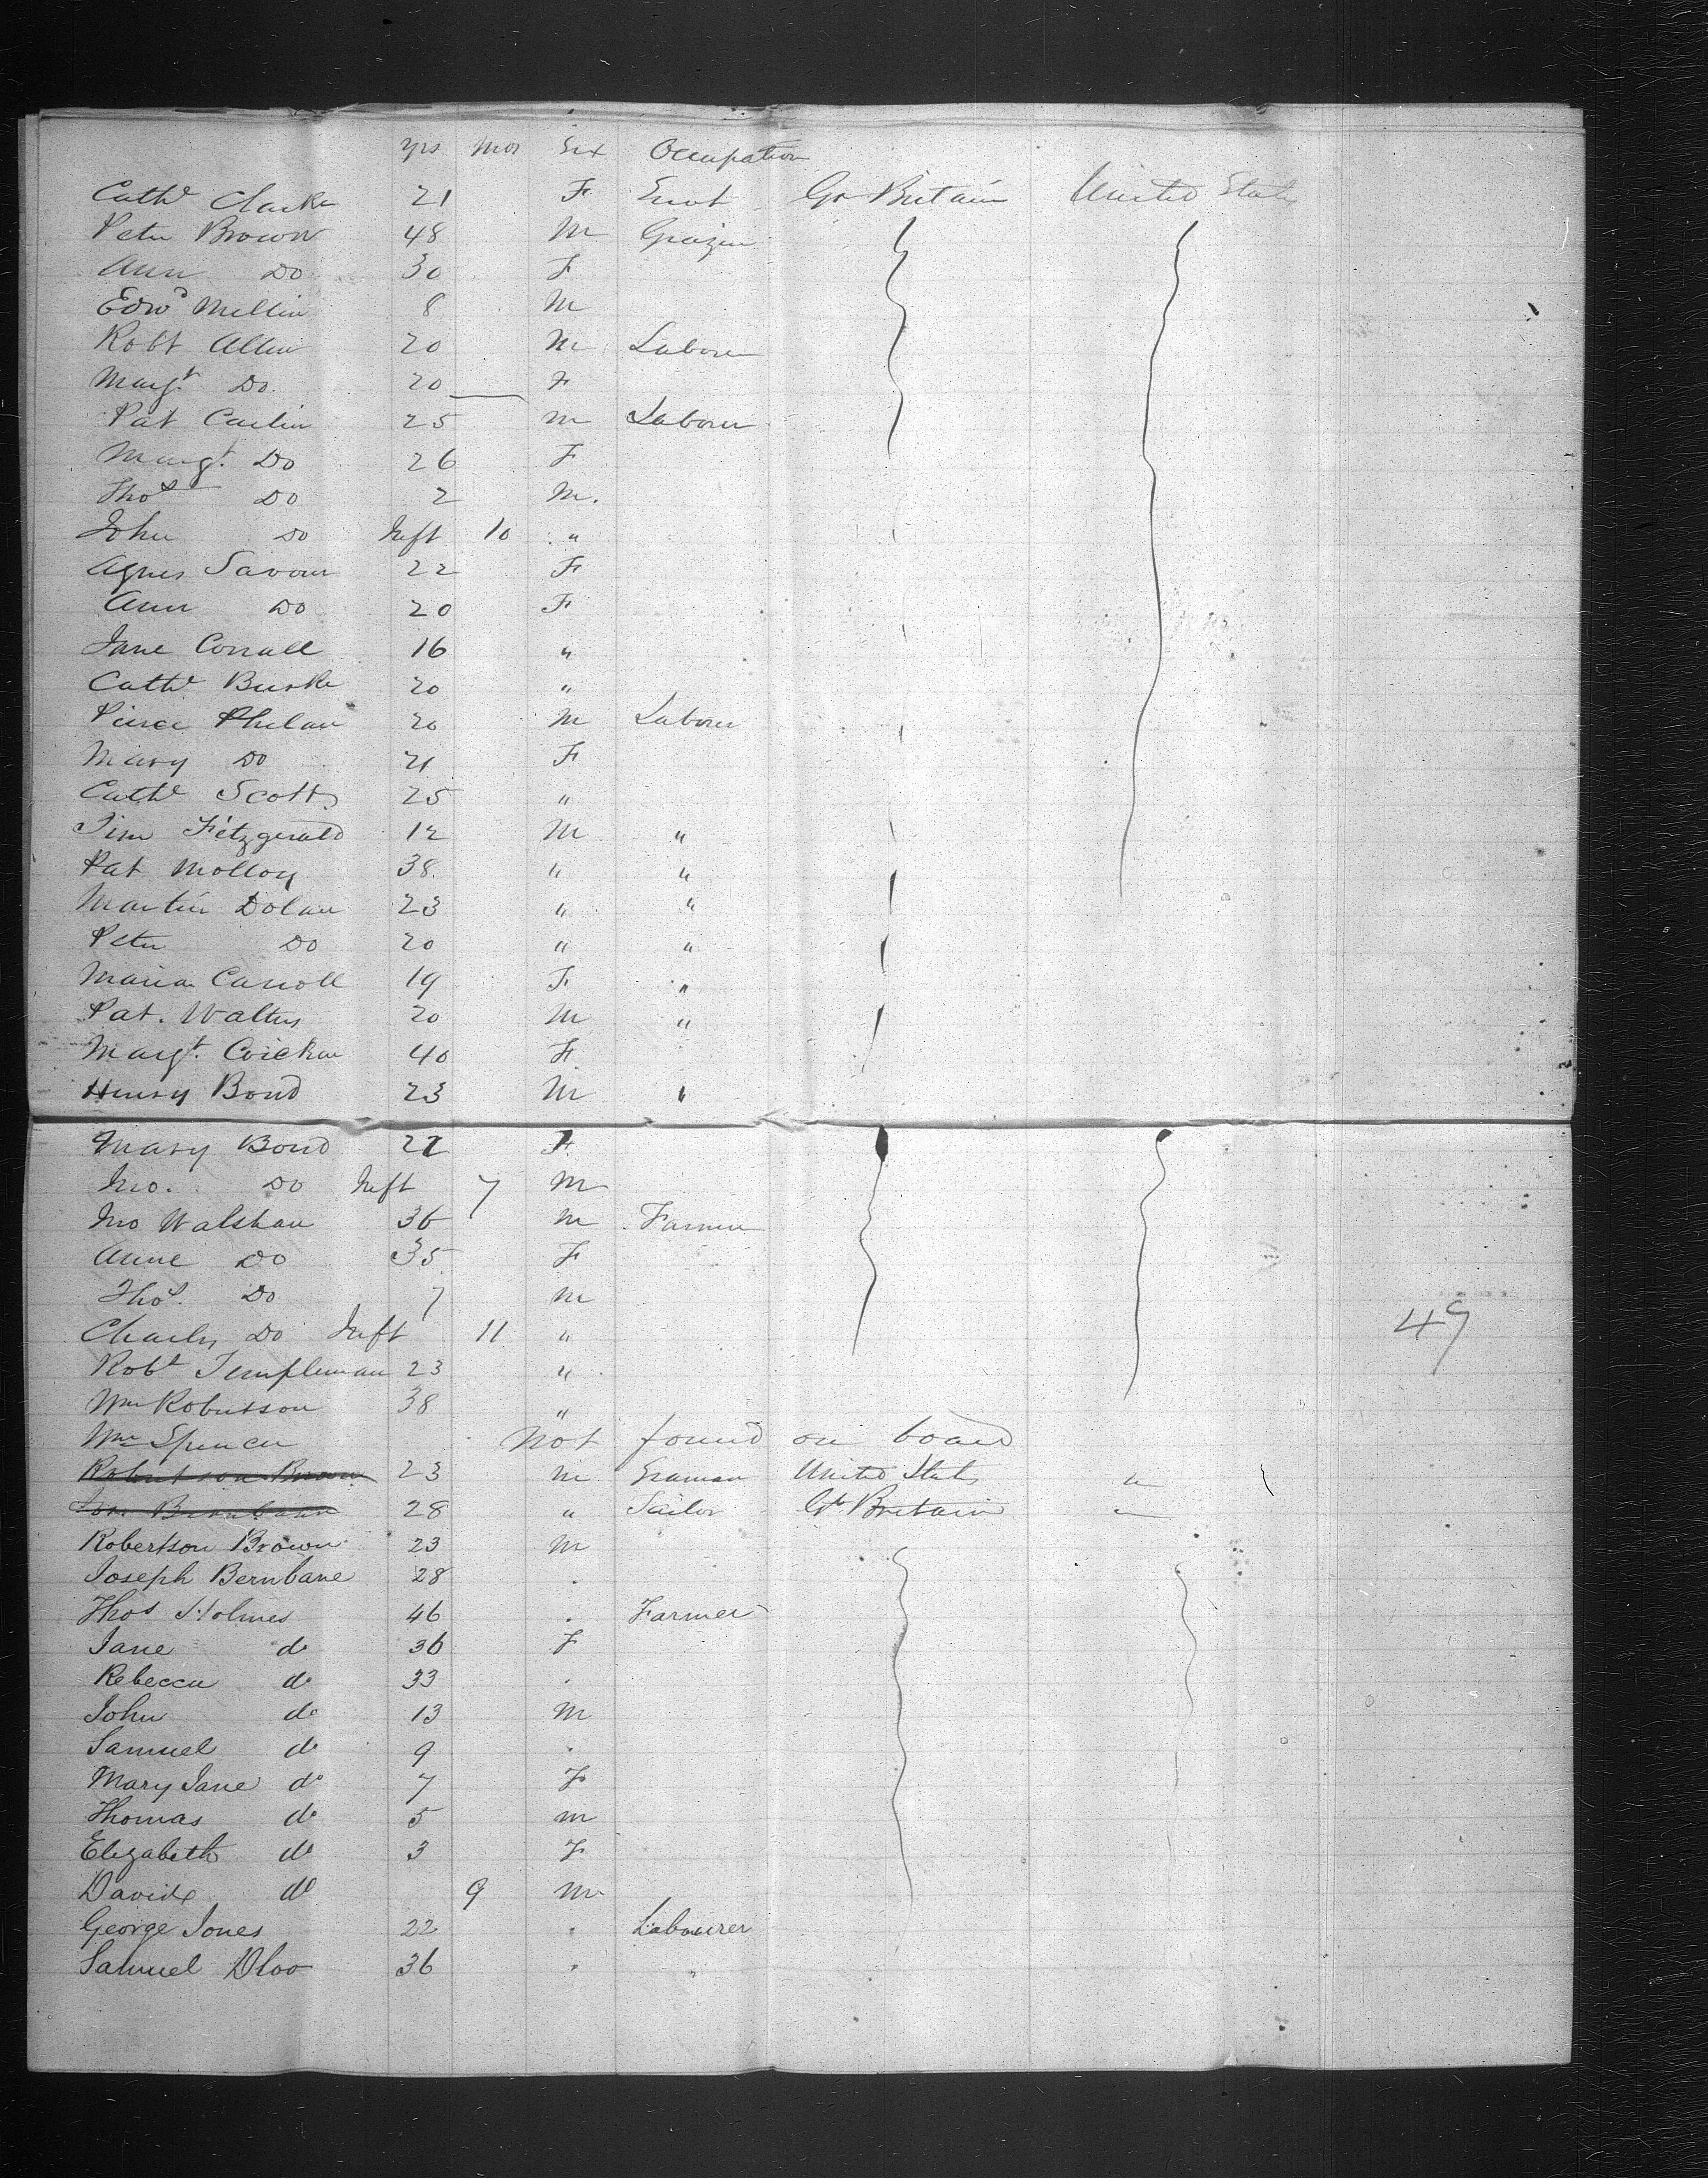 yrs Mos Sex Occupation
Cathe Clarke 21 F Servt Gr Britain United States
Peter Brown 48 M Grazier
Ann Do 30 F
Edwd Mellin 8 M
Robt Allen 20 M Laborer
Margt Do. 20 F
Pat Carlin 25 m Laborer
Margt. Do 26 F
Thos Do 2 M.
John Do Inft 10 "
Agnes Savour 22 F
Ann Do 20 F
Jane Conall 16 "
Cathe Burke 20 "
Pierce Phelan 20 M Laborer
Mary Do 21 F
Cathe Scott 25 "
Tim Fitzgerald 12 M "
Pat Molloy 38. " "
Martin Dolan 23 " "
Peter Do 20 " "
Maria Carroll 19 F "
Pat. Walters 20 M "
Margt. 40 F
Henry Bond 23 M "
Mary Bond F
Jno. Do Inft 7 M
Jno Walshaw 36 M Farmer
Anne Do 35 F
Thos. Do 7 m
Charles Do Inft 11 " 49
Robt Templeman 23 "
Wm Robertson 38 "
Wm Spencer Not found on board
Robertson Brown 23 m Seaman United States "
Burnbane 28 " Sailor Gt Britain "
Robertson Brown 23 M
Joseph Bernbane 28 .
Thos Holmes 46 . Farmer
Jane do 36 F
Rebecca do 33 .
John do 13 M
Samuel do 9 .
Mary Jane do 7 F
Thomas do 5 m
Elizabeth do 3 F
David do 9 M
George Jones 22 . Labourer
Samuel 36 . "